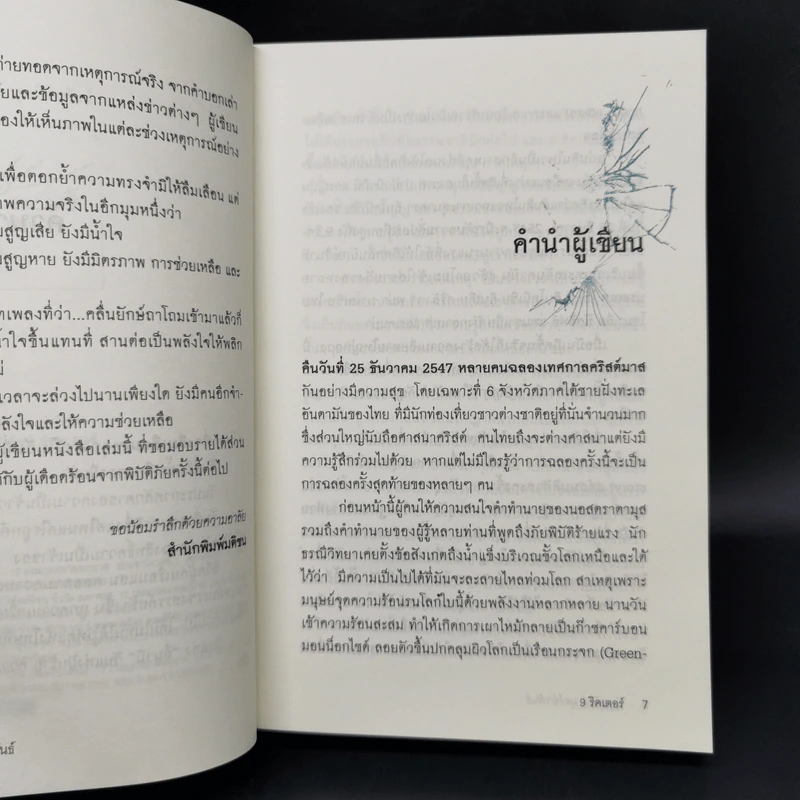 ่ายทอดจากเหตุการณ์จริง จากคำบอกเล่า
ัยและข้อมูลจากแหล่งข่าวต่างๆ ผู้เขียน
องให้เห็นภาพในแต่ละช่วงเหตุการณ์อย่าง
เพื่อตอกย้ำความทรงจำมิให้ลืมเลือน แต่
าพความจริงในอีกมุมหนึ่งว่า
มสูญเสีย ยังมีน้ำใจ
มสูญหาย ยังมีมิตรภาพ การช่วยเหลือ และ
ทเพลงที่ว่า...คลื่นยักษ์ถาโถมเข้ามาแล้วก็
น้ำใจขึ้นแทนที่ สานต่อเป็นพลังใจให้พลิก
ม่
เวลาจะล่วงไปนานเพียงใด ยังมีคนอีกจำ-
ลังใจและให้ความช่วยเหลือ
ผู้เขียนหนังสือเล่มนี้ ที่ขอมอบรายได้ส่วน
้กับผู้เดือดร้อนจากพิบัติภัยครั้งนี้ต่อไป
ขอน้อมรำลึกด้วยความอาลัย
สำนักพิมพ์มติชน
ันธ์
คำนำผู้เขียน
คืนวันที่ 25 ธันวาคม 2547 หลายคนฉลองเทศกาลคริสต์มาส
กันอย่างมีความสุข โดยเฉพาะที่ 6 จังหวัดภาคใต้ชายฝั่งทะเล
อันดามันของไทย ที่มีนักท่องเที่ยวชาวต่างชาติอยู่ที่นั่นจำนวนมาก
ซึ่งส่วนใหญ่นับถือศาสนาคริสต์ คนไทยถึงจะต่างศาสนาแต่ยังมี
ความรู้สึกร่วมไปด้วย หากแต่ไม่มีใครรู้ว่าการฉลองครั้งนี้จะเป็น
การฉลองครั้งสุดท้ายของหลายๆ คน
ก่อนหน้านี้ผู้คนให้ความสนใจคำทำนายของนอสตราดามุส
รวมถึงคำทำนายของผู้รู้หลายท่านที่พูดถึงภัยพิบัติร้ายแรง นัก
ธรณีวิทยาเคยตั้งข้อสังเกตถึงน้ำแข็งบริเวณขั้วโลกเหนือและใต้
ไว้ว่า มีความเป็นไปได้ที่มันจะละลายไหลท่วมโลก สาเหตุเพราะ
มนุษย์จุดความร้อนรนโลกใบนี้ด้วยพลังงานหลากหลาย นานวัน
เข้าความร้อนสะสม ทำให้เกิดการเผาไหม้กลายเป็นก๊าซคาร์บอน
มอนน็อกไซด์ ลอยตัวขึ้นปกคลุมผิวโลกเป็นเรือนกระจก (Green-
9 ริคเตอร์ 7